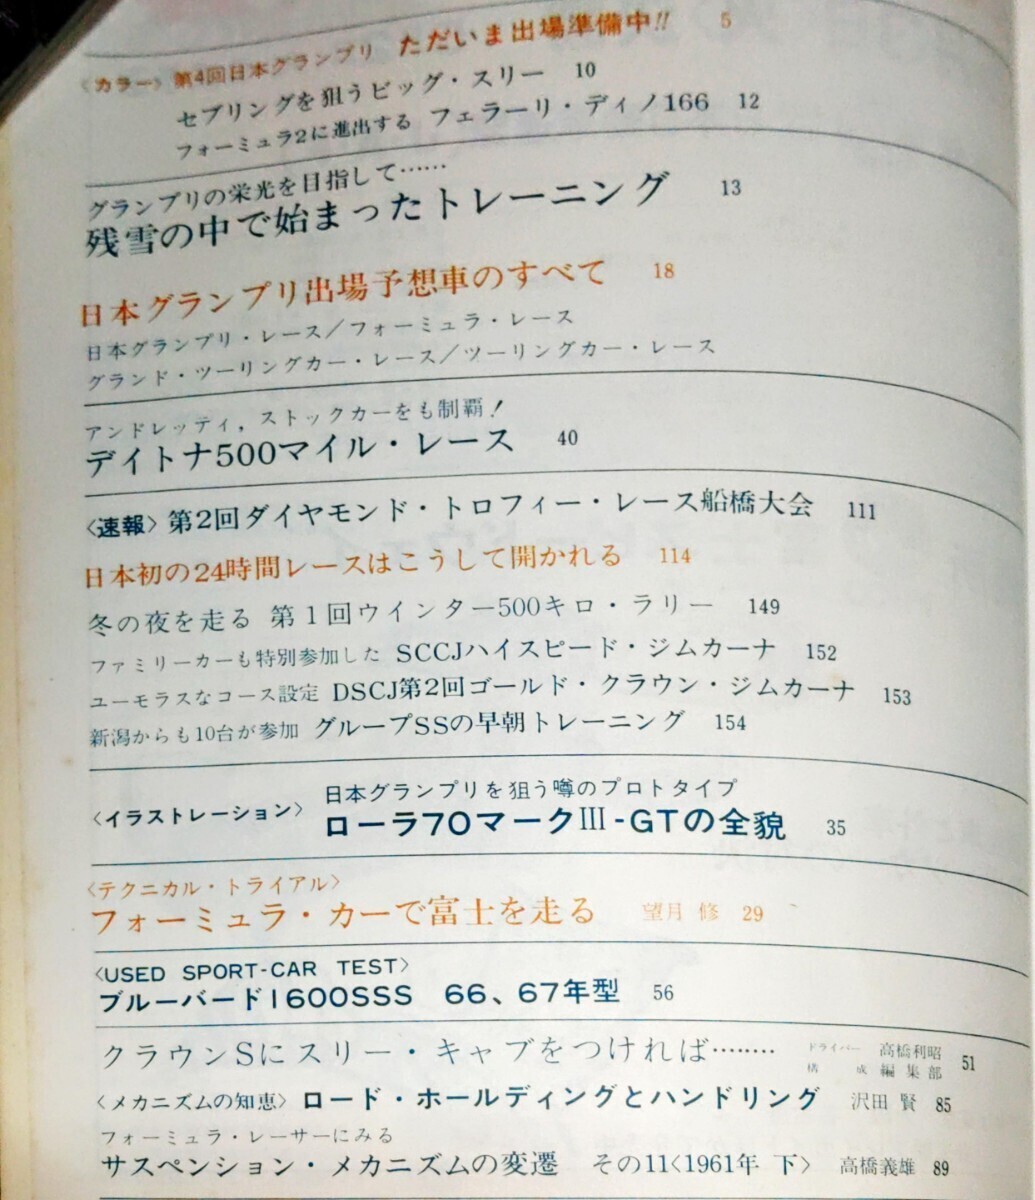 〈カラー〉第4回日本グランプリ ただいま出場準備中!! 5
セブリングを狙うビッグ・スリー 10
フォーミュラ2に進出する フェラーリ・ディノ166 12
グランプリの栄光を目指して……
残雪の中で始まったトレーニング 13
日本グランプリ出場予想車のすべて 18
日本グランプリ・レース/フォーミュラ・レース
グランド・ツーリングカー・レース/ツーリングカー・レース
アンドレッティ,ストックカーをも制覇!
デイトナ500マイル・レース 40
〈速報〉第2回ダイヤモンド・トロフィー・レース船橋大会 111
日本初の24時間レースはこうして開かれる 114
冬の夜を走る 第1回ウインター500キロ・ラリー 149
ファミリーカーも特別参加した SCCJハイスピード・ジムカーナ 152
ユーモラスなコース設定 DSCJ第2回ゴールド・クラウン・ジムカーナ 153
新潟からも10台が参加 グループSSの早朝トレーニング 154
〈イラストレーション〉 日本グランプリを狙う噂のプロトタイプ
ローラ70マークIII-GTの全貌 35
〈テクニカル・トライアル〉
フォーミュラ・カーで富士を走る 望月 修 29
〈USED SPORT-CAR TEST〉
ブルーバード1600SSS 66、67年型 56
クラウンSにスリー・キャブをつければ…… ドライバー 高橋利昭 51
構成 編集部
〈メカニズムの知恵〉ロード・ホールディングとハンドリング 沢田 賢 85
フォーミュラ・レーサーにみる
サスペンション・メカニズムの変遷 その11〈1961年 下〉 高橋義雄 89